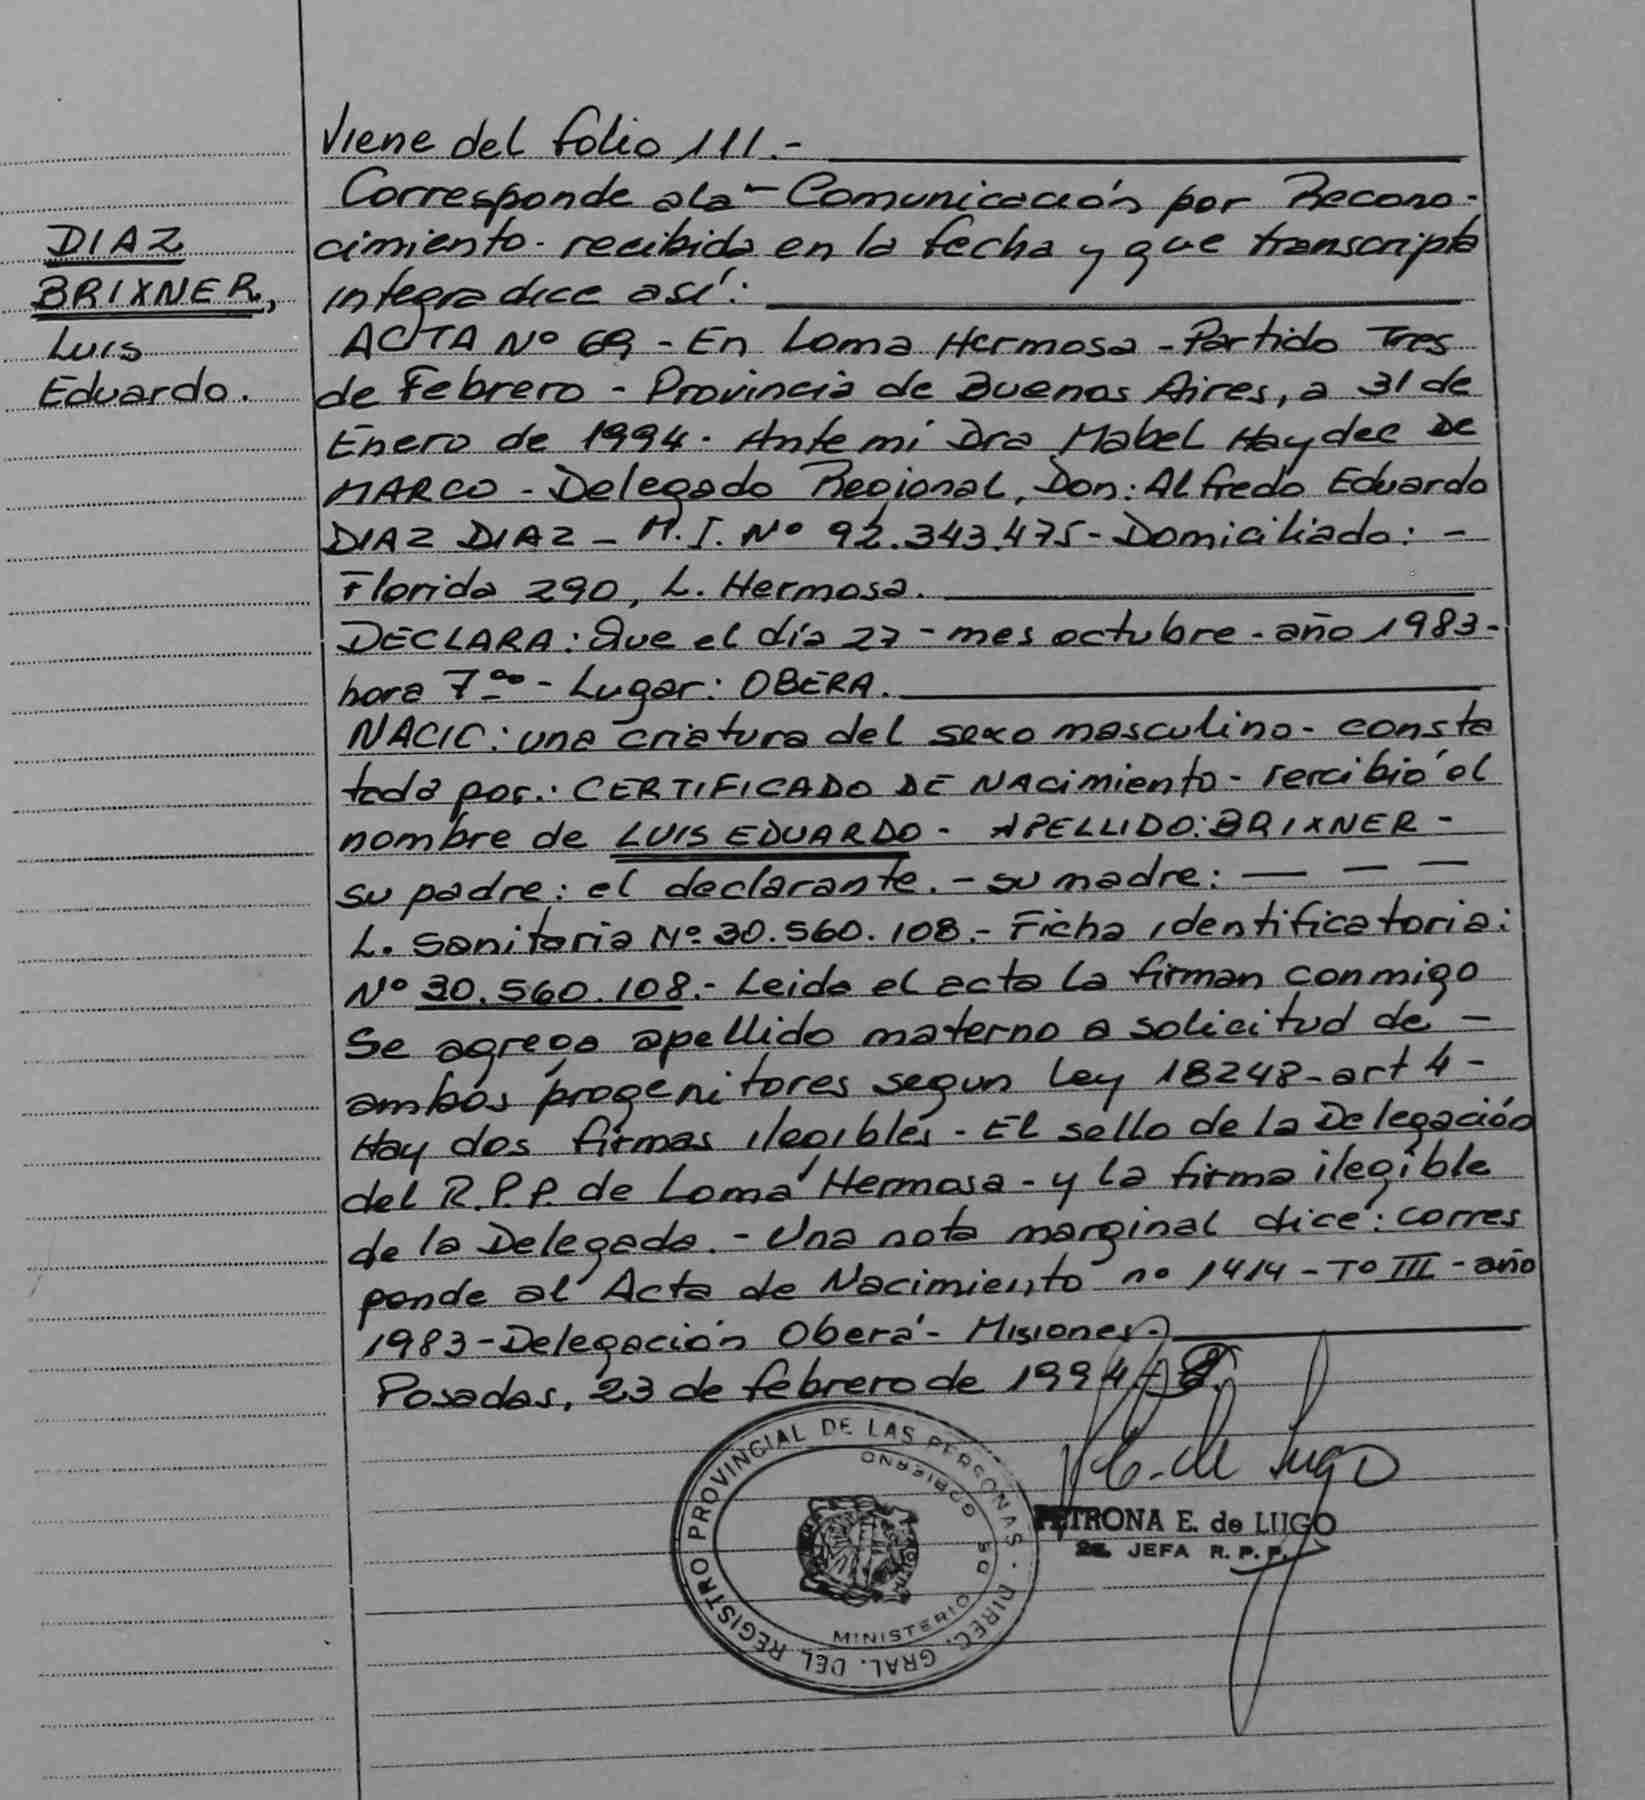 DIAZ
BRIXNER,
Luis
Eduardo.
Viene del folio 111.-
Corresponde a la - Comunicación por Recono-
cimiento - recibida en la fecha y que transcripta
integra dice así:
ACTA Nº 69 - En Loma Hermosa - Partido Tres
de Febrero - Provincia de Buenos Aires, a 31 de
Enero de 1994 - Ante mí Dra Mabel Haydee DE
MARCO - Delegado Regional, Don: Alfredo Eduardo
DIAZ DIAZ - M.I. Nº 92.343.475 - Domiciliado: -
Florida 290, L. Hermosa.
DECLARA: Que el día 27 - mes octubre - año 1983 -
hora 7ºº - Lugar: OBERA.
NACIC: una criatura del sexo masculino - consta
tada por: CERTIFICADO DE NACimiento - rercibió el
nombre de LUIS EDUARDO - APELLIDO: BRIXNER -
su padre: el declarante. - su madre: — — —
L. Sanitaria Nº 30.560.108.- Ficha identificatoria:
Nº 30.560.108.- Leida el acta la firman conmigo
Se agrega apellido materno a solicitud de -
ambos progenitores segun Ley 18248 - art 4 -
Hay dos firmas ilegibles - El sello de la Delegación
del R.P.P. de Loma Hermosa - y la firma ilegible
de la Delegada. - Una nota marginal dice: corres
ponde al Acta de Nacimiento nº 1414 - Tº III - año
1983 - Delegación Oberá - Misiones.
Posadas, 23 de febrero de 1994.-
P. E. de Lugo
PETRONA E. de LUGO
2a. JEFA R. P. P.
DIREC. GRAL. DEL REGISTRO PROVINCIAL DE LAS PERSONAS
MINISTERIO DE GOBIERNO